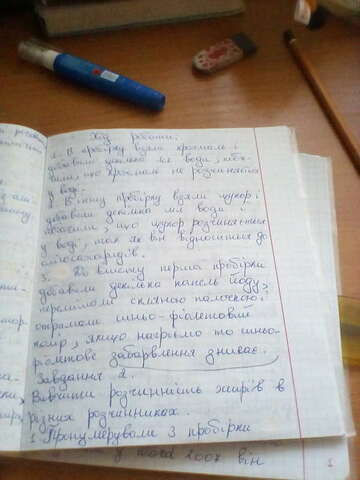 Хід роботи:
1. В пробірку взяли крохмаль і
добавили декілька мл води, поба-
чили, що крохмаль не розчиняється
у воді.
2. В іншу пробірку взяли цукор і
добавили декілька мл води і
побачили, що цукор розчиняється
у воді, так як він відноситься до
олігосахаридів.
3. До вмісту першої пробірки
добавили декілька капель йоду,
перемішали скляною паличкою і
отримали синьо-фіолетовий
колір, якщо нагріємо то синьо-
фіолетове забарвлення зникає.
Завдання 2.
Вивчити розчинність жирів в
різних розчинниках.
1 Пронумерували 3 пробірки
у word 2007. він
1